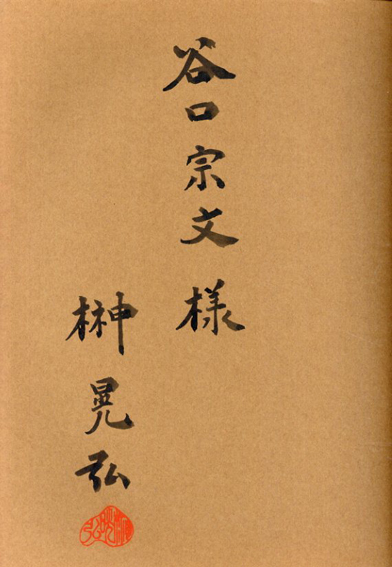 谷口宗文様
榊晃弘